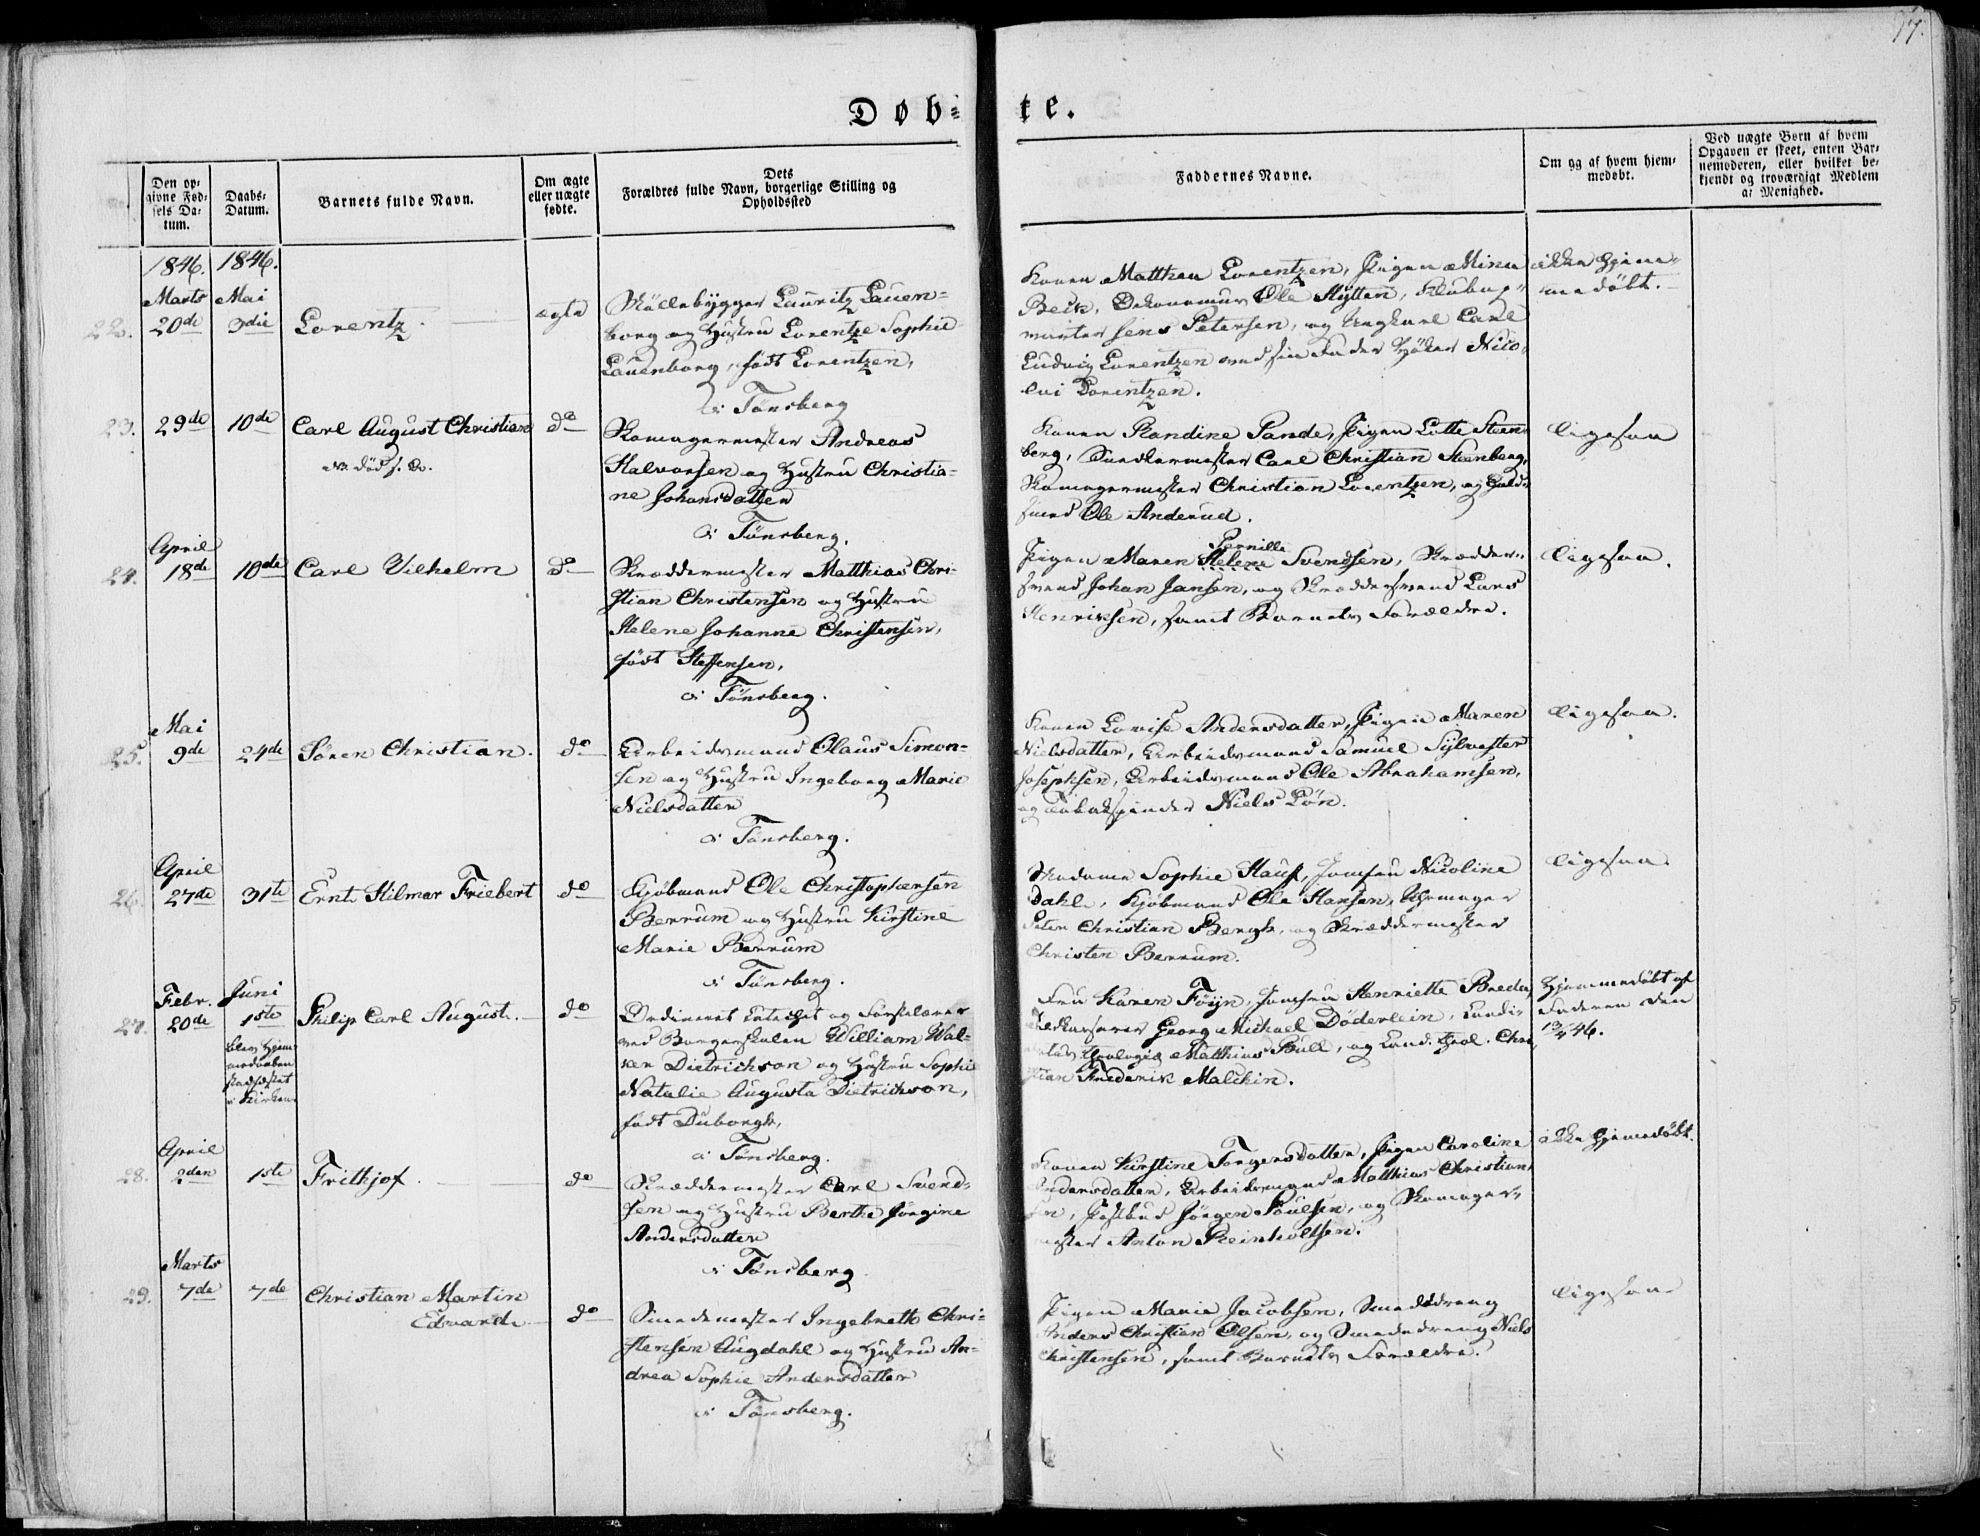 77.
Døb-
te.
Den op-
givne Fød-
sels Da-
tum.
Daabs-
Datum.
Barnets fulde Navn.
Om ægte
eller uægte
fødte.
Dets
Forældres fulde Navn, borgerlige Stilling og
Opholdssted
Faddernes Navne.
Om og af hvem hjem-
medøbt.
Ved uægte Børn af hvem
Opgaven er skeet, enten Bar-
nemoderen, eller hvilket be-
kjendt og troværdigt Medlem
af Menighed.
22.
1846.
Marts
20de
1846.
Mai
3die
Lorentz.
ægte
Møllebygger Lauritz Lauen-
borg og Hustru Lorentze Sophie
Lauenborg, født Lorentzen,
i Tønsberg
Konen Matthea Lorentzen, Pigen Mina
Beck, Oekonomus Ole Hytten,
Jens Petersen, og Ungkarl Carl
Ludvig Lorentzen med sin Fader Høker Nico-
lai Lorentzen.
ikke hjem-
medøbt.
23.
29de
10de
Carl August Christian
N. død s. D.
do
Skomagermester Andreas
Halvorsen og Hustru Christia-
ne Johansdatter
i Tønsberg.
Konen Randine Pande, Pigen Lotte Steen-
berg, Snedkermester Carl Christian Steenberg,
Skomagermester Christian Lorentzen, og Guld-
svend Ole Anderud.
ligesaa
24.
April
18de
10de
Carl Vilhelm
do
Skræddermester Matthias Chri-
stian Christensen og Hustru
Helene Johanne Christensen,
født Steffensen,
i Tønsberg.
Pernille
Pigen Maren Helene Svendsen, Skrædder-
svend Johan Jansen, og Skræddersvend Lars
Henriksen, samt Barnets Forældre.
ligesaa.
25.
Mai
9de
24de
Søren Christian.
do
Arbeidsmand Olaus Simon-
sen og Hustru Ingeborg Marie
Nielsdatter
i Tønsberg.
Konen Lovise Andersdatter, Pigen Maren
Nielsdatter, Arbeidsmand Samuel Sylvester
Josephsen, Arbeidsmand Ole Abrahamsen,
og Tobakspinder Niels Løn.
ligesaa.
26.
April
27de
31te
Ernt Hilmar Friebert
do
Kjøbmand Ole Christophersen
Berrum og Hustru Kirstine
Marie Berrum
i Tønsberg.
Madame Sophie Hauf, Jomfru Nicoline
Dahl, Kjøbmand Ole Hansen, Uhrmager
Peter Christian Bergh, og Skræddermester
Christen Berrum.
ligesaa
27.
Febr.
20de
Juni
1ste
blev Hjem-
medaaben
stadfæstet
i Kirken
Philip Carl August.
do
Ordineret Catechet og Førstelærer
ved Borgerskolen William Wal-
ker Dietrichson og Hustru Sophie
Natalie Augusta Dietrichson,
født Dubourgh,
i Tønsberg.
Fru Karen Føyn, Jomfru Henriette Breda,
Georg Michael Döderlein, Candi-
datus Theologiæ Matthias Bull, og Cand. theol. Chri-
stian Frederik Malchin.
Hjemmedøbt af
Faderen den
46.
28.
April
2den
1ste
Frithjof.
do
Skræddermester Carl Svend-
sen og Hustru Berthe Jørgine
Andersdatter
i Tønsberg
Konen Kirstine Torgersdatter, Pigen Caroline
Andersdatter, Arbeidsmand Matthias Christian-
sen, Postbud Jørgen Poulsen, og Skomager-
mester Anton Reinholtsen.
ikke hjemmedøbt.
29.
Marts
7de
7de
Christian Martin
Edvard.
do
Smedemester Ingebreth Chri-
stensen Augdahl og Hustru An-
drea Sophie Andersdatter
i Tønsberg.
Pigen Maria Jacobsen, Smededreng
Anders Christian Olsen, og Smededreng Niels
Christensen, samt Barnets Forældre.
ligesaa